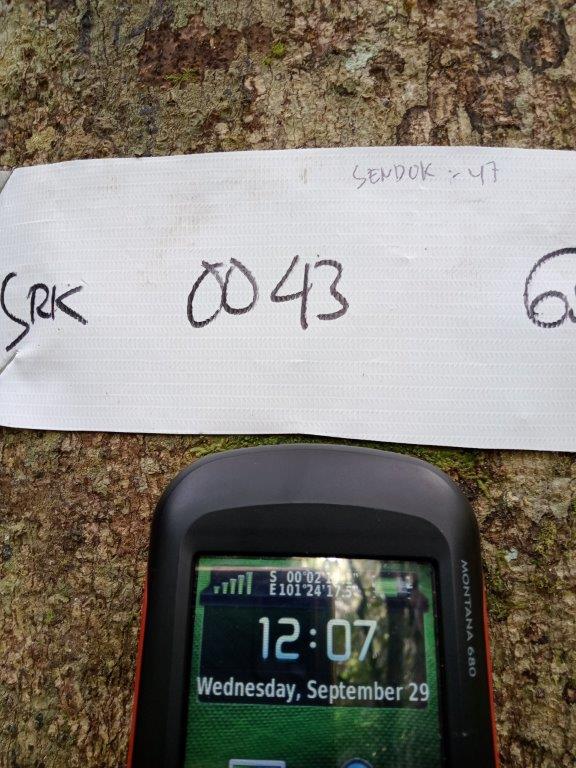 SENDOK :- 47
SRK 0043
S 00°02'
E101°24'17.5"
12:07
Wednesday, September 29
MONTANA 680